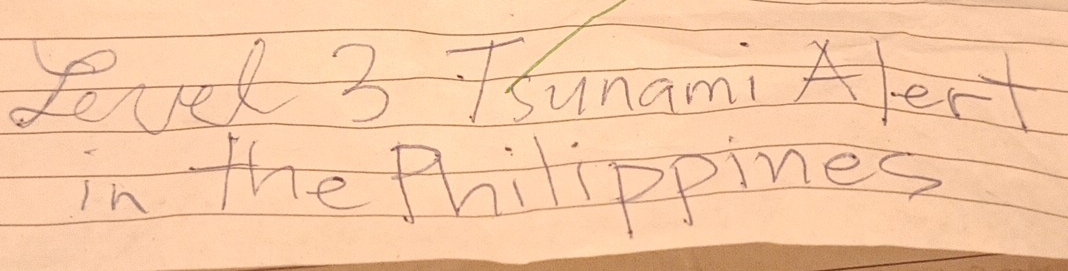 Level 3 Tsunami Alert
in the Philippines